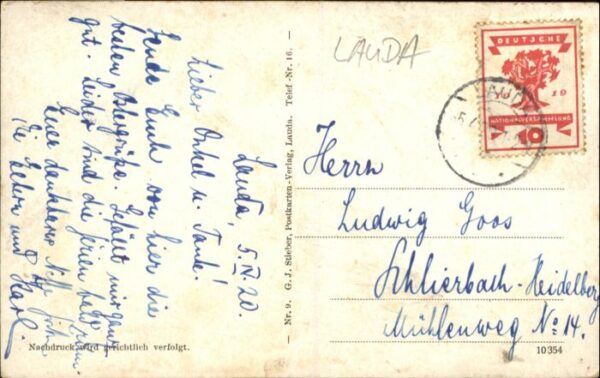 LAUDA
DEUTSCHE
19
NATIONALVERSAMMLUNG
10
Lauda, 5.IV.20.
Lieber Onkel u. Tante!
Sende Euch von hier die
besten Ostergrüße. Gefällt mir ganz
gut. Leider sind die Ferien bald
Euer dankbarer Neffe
Die Eltern und
Karl.
Nachdruck wird gerichtlich verfolgt.
Nr. 9. G. J. Stieber, Postkarten-Verlag, Lauda. Telef.-Nr. 16.
Herrn
Ludwig Goos
Schlierbach-Heidelberg
Mühlenweg No 14.
10354